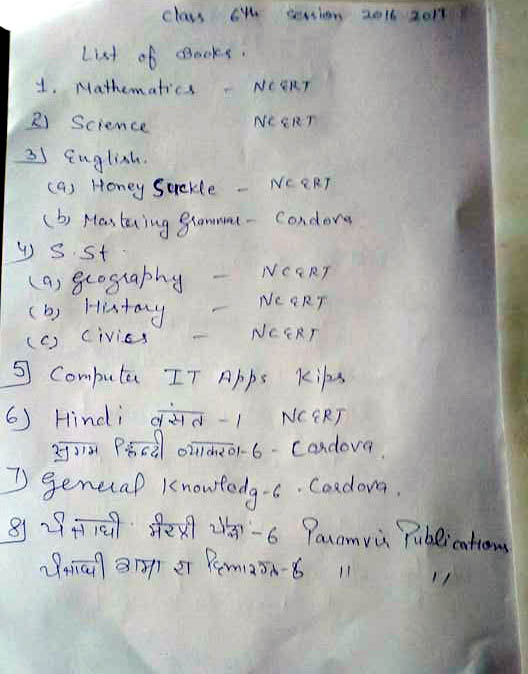 Class 6th Session 2016 2017
List of Books.
1. Mathematics - NCERT
2) Science NCERT
3) English.
(a) Honey Suckle - NCERT
(b) Mastering Grammar - Cordova
4) S.St.
(a) Geography - NCERT
(b) History - NCERT
(c) Civics - NCERT
5) Computer IT Apps Kips
6) Hindi वसंत -1 NCERT
सुगम हिन्दी व्याकरण-6 - Cordova.
7) General Knowledg-6. Cordova.
8) -6 Paramvir Publications
-6 " "